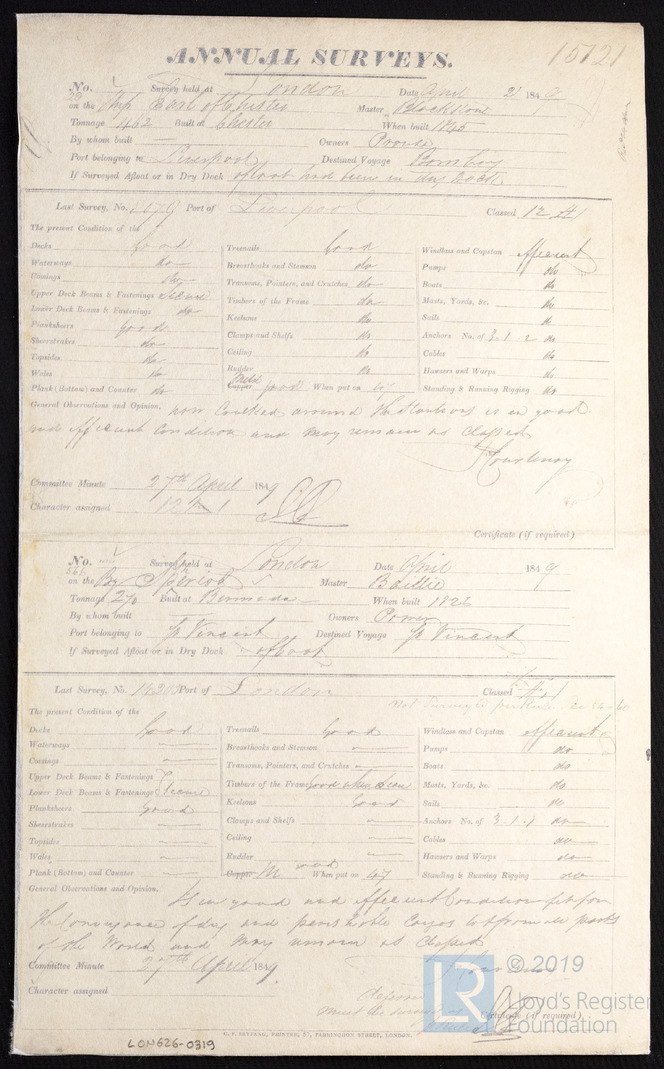 15121
ANNUAL SURVEYS.
No. Survey held at London Date April 2 1849
on the Ship Earl of Chester Master Blackstone
Tonnage 462 Built at Chester When built 1845
By whom built — Owners
Port belonging to Liverpool Destined Voyage Bombay
If Surveyed Afloat or in Dry Dock afloat had been in Dry Dock
Last Survey, No. Port of Liverpool Classed 12 A 1
The present Condition of the
Decks Good Treenails Good Windlass and Capstan efficient
Waterways do Breasthooks and Stemson do Pumps do
Comings do Transoms, Pointers, and Crutches do Boats do
Upper Deck Beams & Fastenings Secure Timbers of the Frame do Masts, Yards, &c. do
Lower Deck Beams & Fastenings do Keelsons do Sails do
Planksheers Good Clamps and Shelfs do Anchors No. of 3-1-2 do
Sheerstrakes do Ceiling do Cables do
Topsides do Rudder do Hawsers and Warps do
Wales do Copper good When put on Standing & Running Rigging do
Plank (Bottom) and Counter do
General Observations and Opinion, now Caulked around the Stanchions is in good
and efficient Condition and may remain as Classed
Courtenay
Committee Minute 27th April 1849
Character assigned 12 A 1
Certificate (if required)
No. Survey held at London Date April 1849
on the Master Baillie
Tonnage Built at Bermuda When built 1826
By whom built Owners Power
Port belonging to St Vincent Destined Voyage St Vincent
If Surveyed Afloat or in Dry Dock afloat
Last Survey, No. Port of London Classed
Not Surveyed
The present Condition of the
Decks Good Treenails Good Windlass and Capstan efficient
Waterways — Breasthooks and Stemson — Pumps do
Comings — Transoms, Pointers, and Crutches — Boats do
Upper Deck Beams & Fastenings Timbers of the Frame Good when seen Masts, Yards, &c. do
Lower Deck Beams & Fastenings Secure Keelsons Good Sails do
Planksheers Good Clamps and Shelfs — Anchors No. of 3-1-1 do
Sheerstrakes — Ceiling — Cables do
Topsides — Rudder — Hawsers and Warps do
Wales — Copper good When put on 47 Standing & Running Rigging do
Plank (Bottom) and Counter —
General Observations and Opinion, Is in good and efficient Condition fit for
the Conveyance of dry and perishable Cargos to & from all parts
of the World and may remain as Classed
Committee Minute 27th April 1849
Character assigned
Certificate (if required).
PRINTER, FARRINGDON STREET, LONDON.
LON626-0319
LR © 2019
Lloyd's Register
Foundation